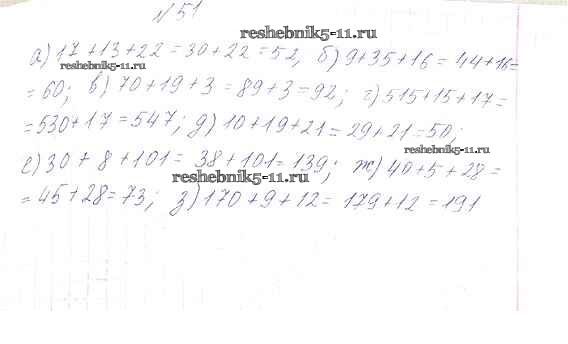 №51
reshebnik5-11.ru
а) 17+13+22=30+22=52, б) 9+35+16=44+16=
reshebnik5-11.ru
=60; в) 70+19+3=89+3=92; г) 515+15+17=
=530+17=547; д) 10+19+21=29+21=50;
reshebnik5-11.ru
е) 30+8+101=38+101=139; ж) 40+5+28=
reshebnik5-11.ru
=45+28=73; з) 170+9+12=179+12=191